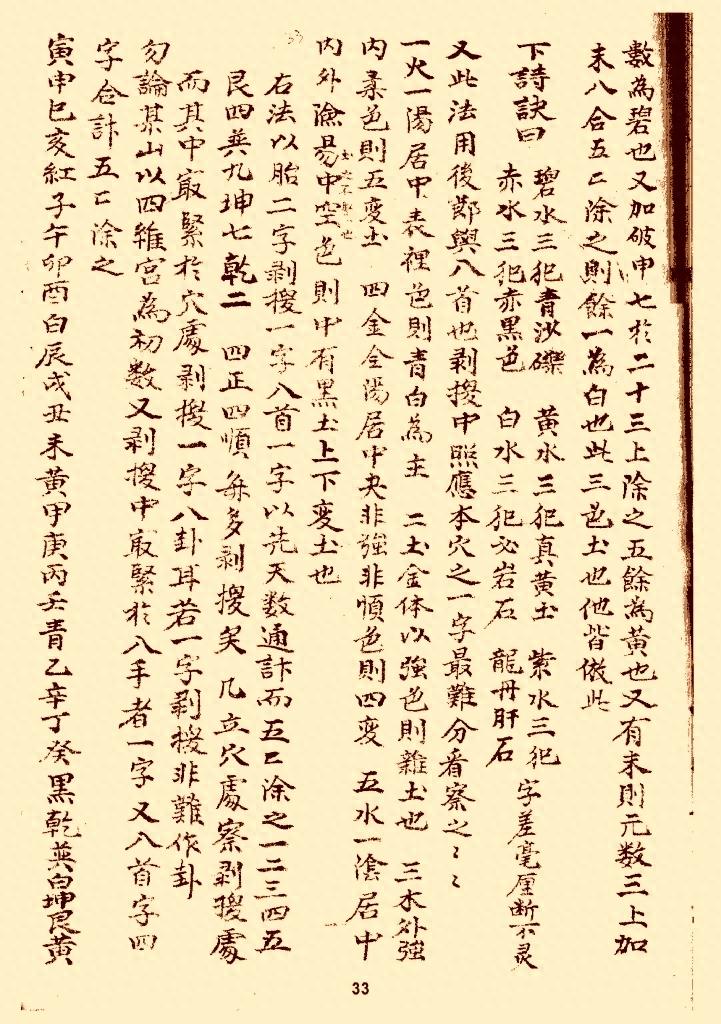 數為碧也又加破申七於二十三上除之五餘為黃也又有末則元数三上加
末八合五〻除之則餘一為白也此三色土也他皆倣此
下詩訣曰　碧水三犯青沙礫　黃水三犯真黃土　紫水三犯　字差毫厘断不灵
赤水三犯赤黑色　白水三犯必岩石　龍丹肝石
又此法用後鄭輿八首也剥換中照應本穴之一字最難分看察之〻〻
一火一陽居中表裡色則青白為主　二土金体以強色則雜土也　三木外強
內柔色則五变土　四金全陽居中央非強非順色則四变　五水一陰居中
內外陰昜中空色則中有黑土上下变土也
右法以胎二字剥換一字八首一字以先天数通計而五〻除之一二三四五
艮四巽九坤七乾二　四正四順無多剥換矣　凡立穴處察剥換處
而其中最緊於穴處剥換一字八卦耳若一字剥換非難作卦
勿論某山以四維宮為初数又剥換中最緊於八手者一字又八首字四
字合計五〻除之
寅申巳亥紅子午卯酉白辰戌丑未黃甲庚丙壬青乙辛丁癸黑乾巽白坤艮黃
33